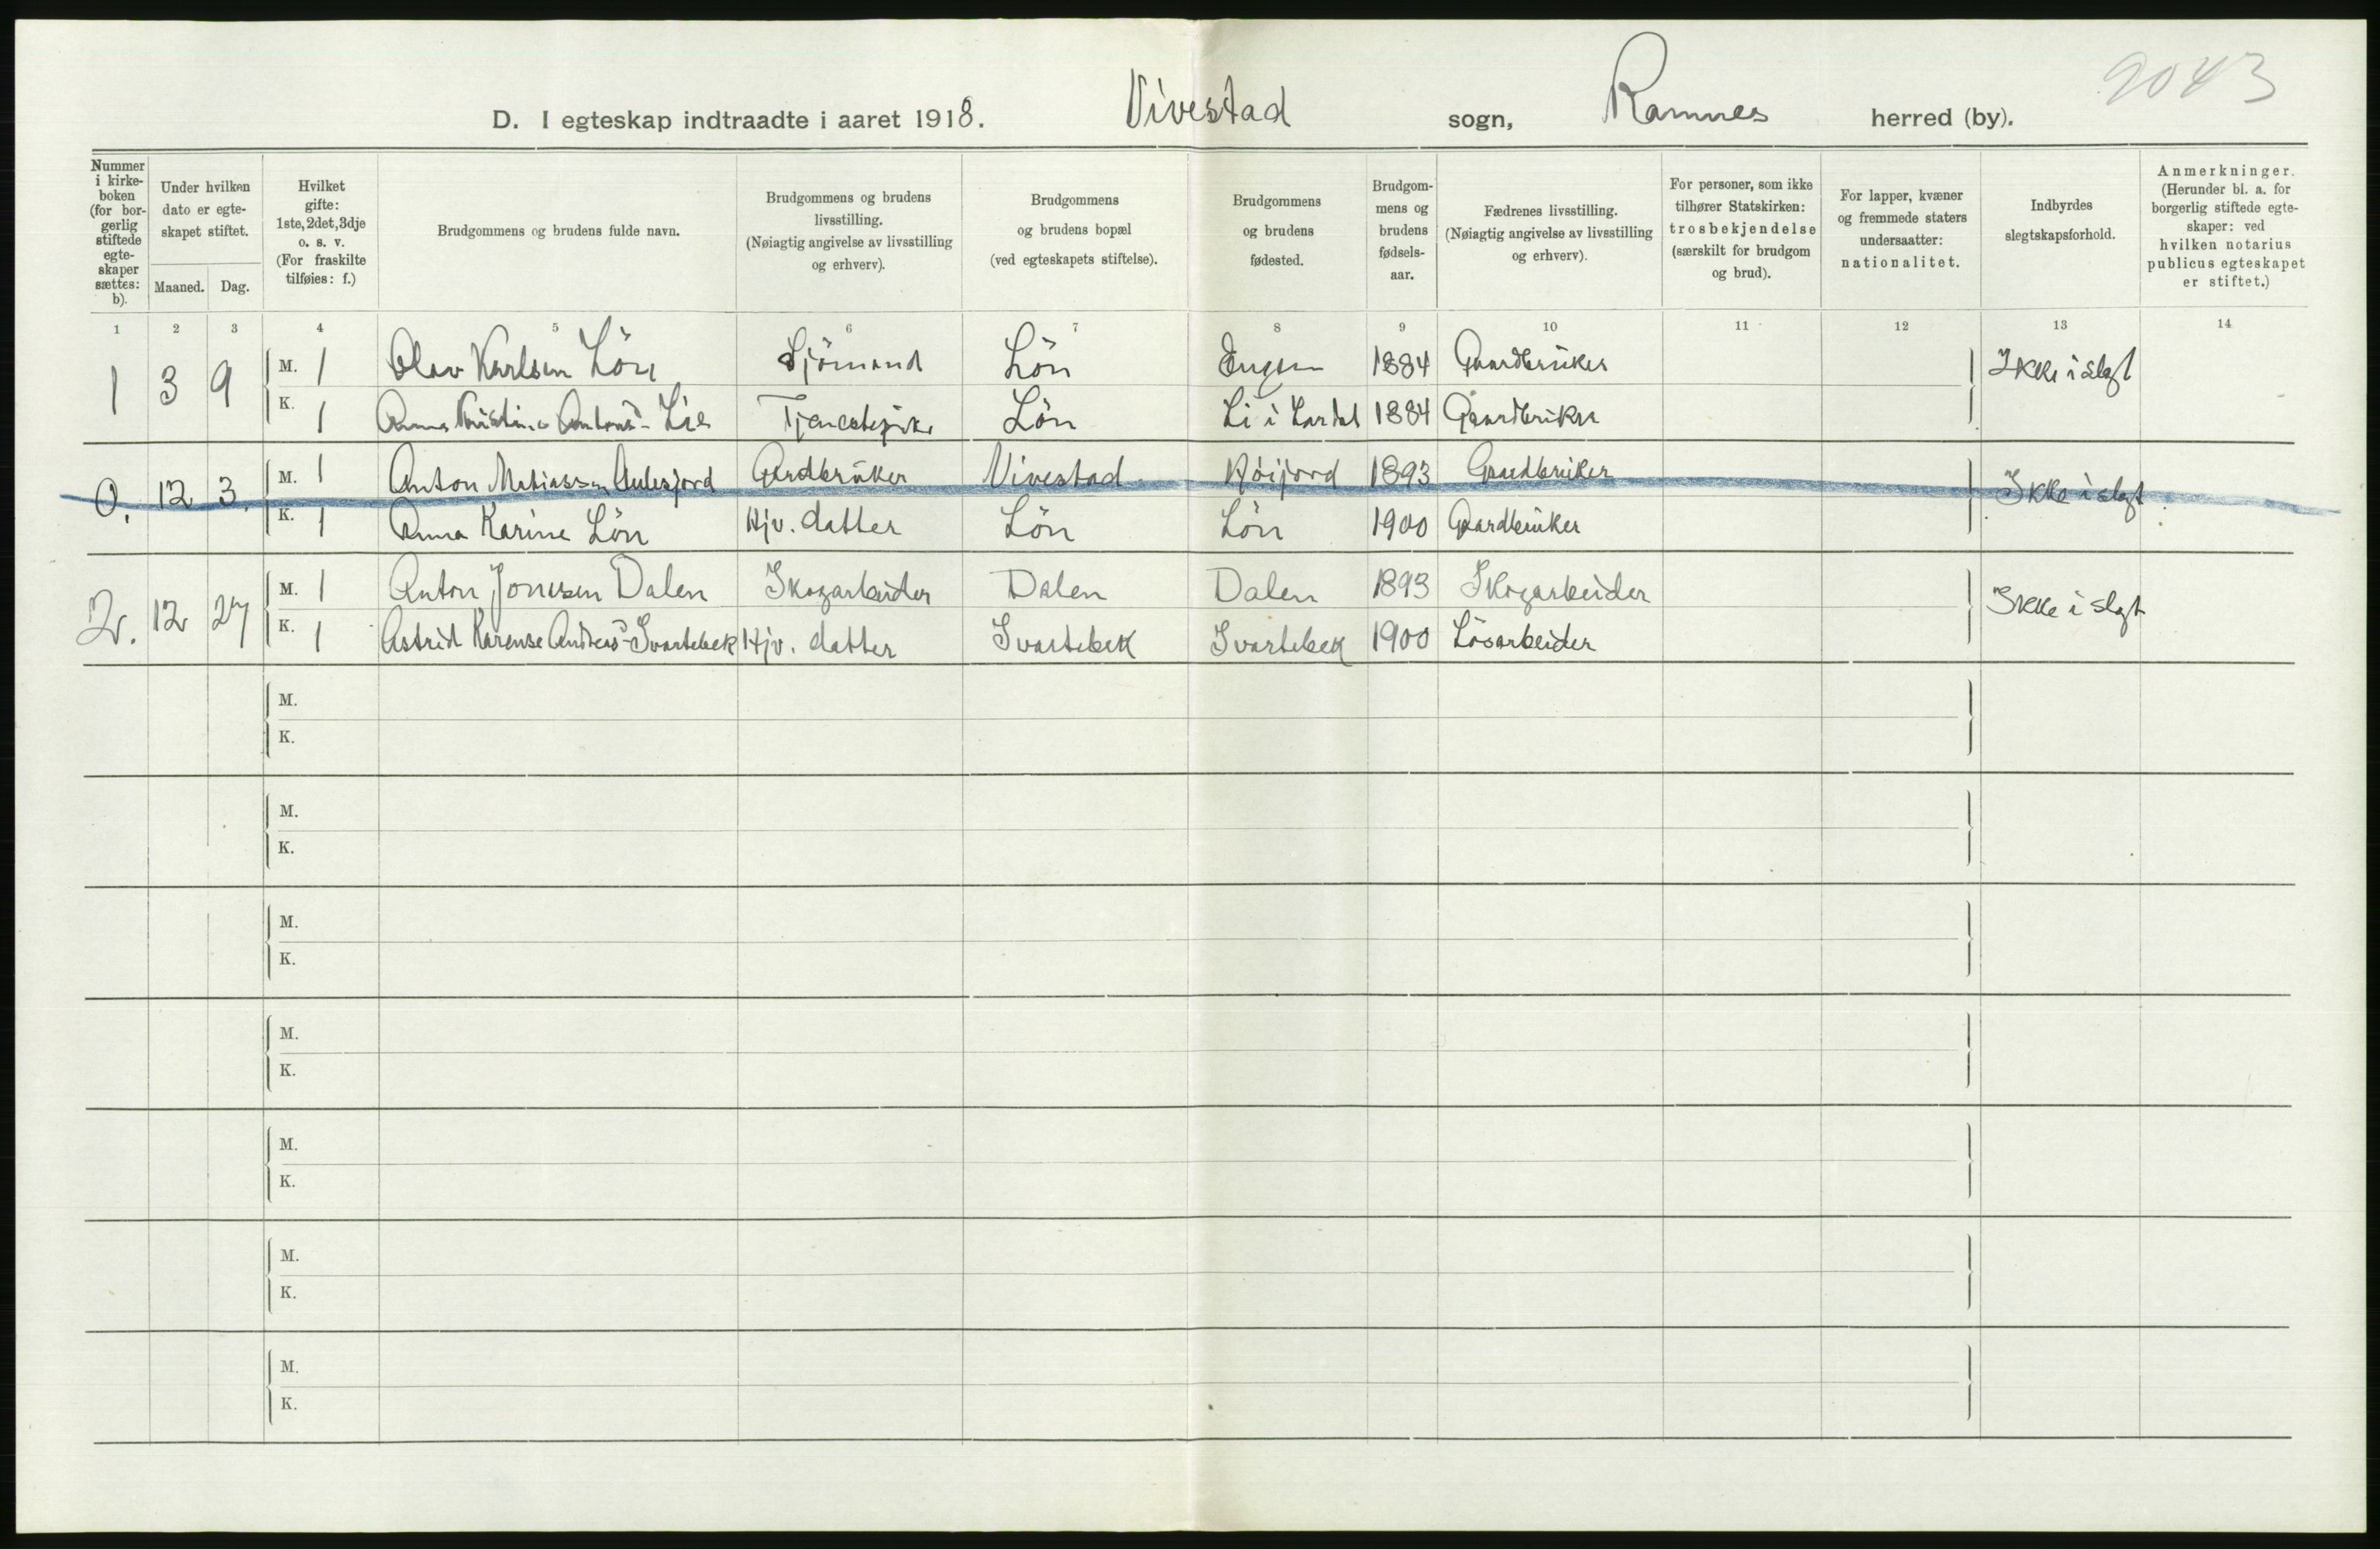 9043
D. I egteskap indtraadte i aaret 1918. Vivestad sogn, Ramnes herred (by).
Nummer i kirke- boken (for bor- gerlig stiftede egte- skaper sættes: b).
Under hvilken dato er egte- skapet stiftet.
Maaned. Dag.
Hvilket gifte: 1ste, 2det, 3dje o. s. v. (For fraskilte tilføies: f.)
Brudgommens og brudens fulde navn.
Brudgommens og brudens livsstilling. (Nøiagtig angivelse av livsstilling og erhverv).
Brudgommens og brudens bopæl (ved egteskapets stiftelse).
Brudgommens og brudens fødested.
Brudgom- mens og brudens fødsels- aar.
Fædrenes livsstilling. (Nøiagtig angivelse av livsstilling og erhverv).
For personer, som ikke tilhører Statskirken: trosbekjendelse (særskilt for brudgom og brud).
For lapper, kvæner og fremmede staters undersaatter: nationalitet.
Indbyrdes slegtskapsforhold.
Anmerkninger. (Herunder bl. a. for borgerlig stiftede egte- skaper: ved hvilken notarius publicus egteskapet er stiftet.)
1 2 3 4 5 6 7 8 9 10 11 12 13 14
1 3 9 M. 1 Olav Karlsen Lön Sjömand Lön Engen 1884 Gaardbruker Ikke i slegt
K. 1 Anna Kristine Antons- Lie Tjenestepike Lön Li i Lardal 1884 Gaardbruker
0. 12 3. M. 1 Anton Matiassen Aulesjord Gardbruker Vivestad Röijord 1893 Gaardbruker Ikke i slegt
K. 1 Anna Karine Lön Hjv. datter Lön Lön 1900 Gardbruker
2. 12 27 M. 1 Anton Jonesen Dalen Skogarbeider Dalen Dalen 1893 Skogarbeider Ikke i slegt
K. 1 Astrid Karense Andreas- Svartebek Hjv. datter Svartebek Svartebek 1900 Lösarbeider
M.
K.
M.
K.
M.
K.
M.
K.
M.
K.
M.
K.
M.
K.